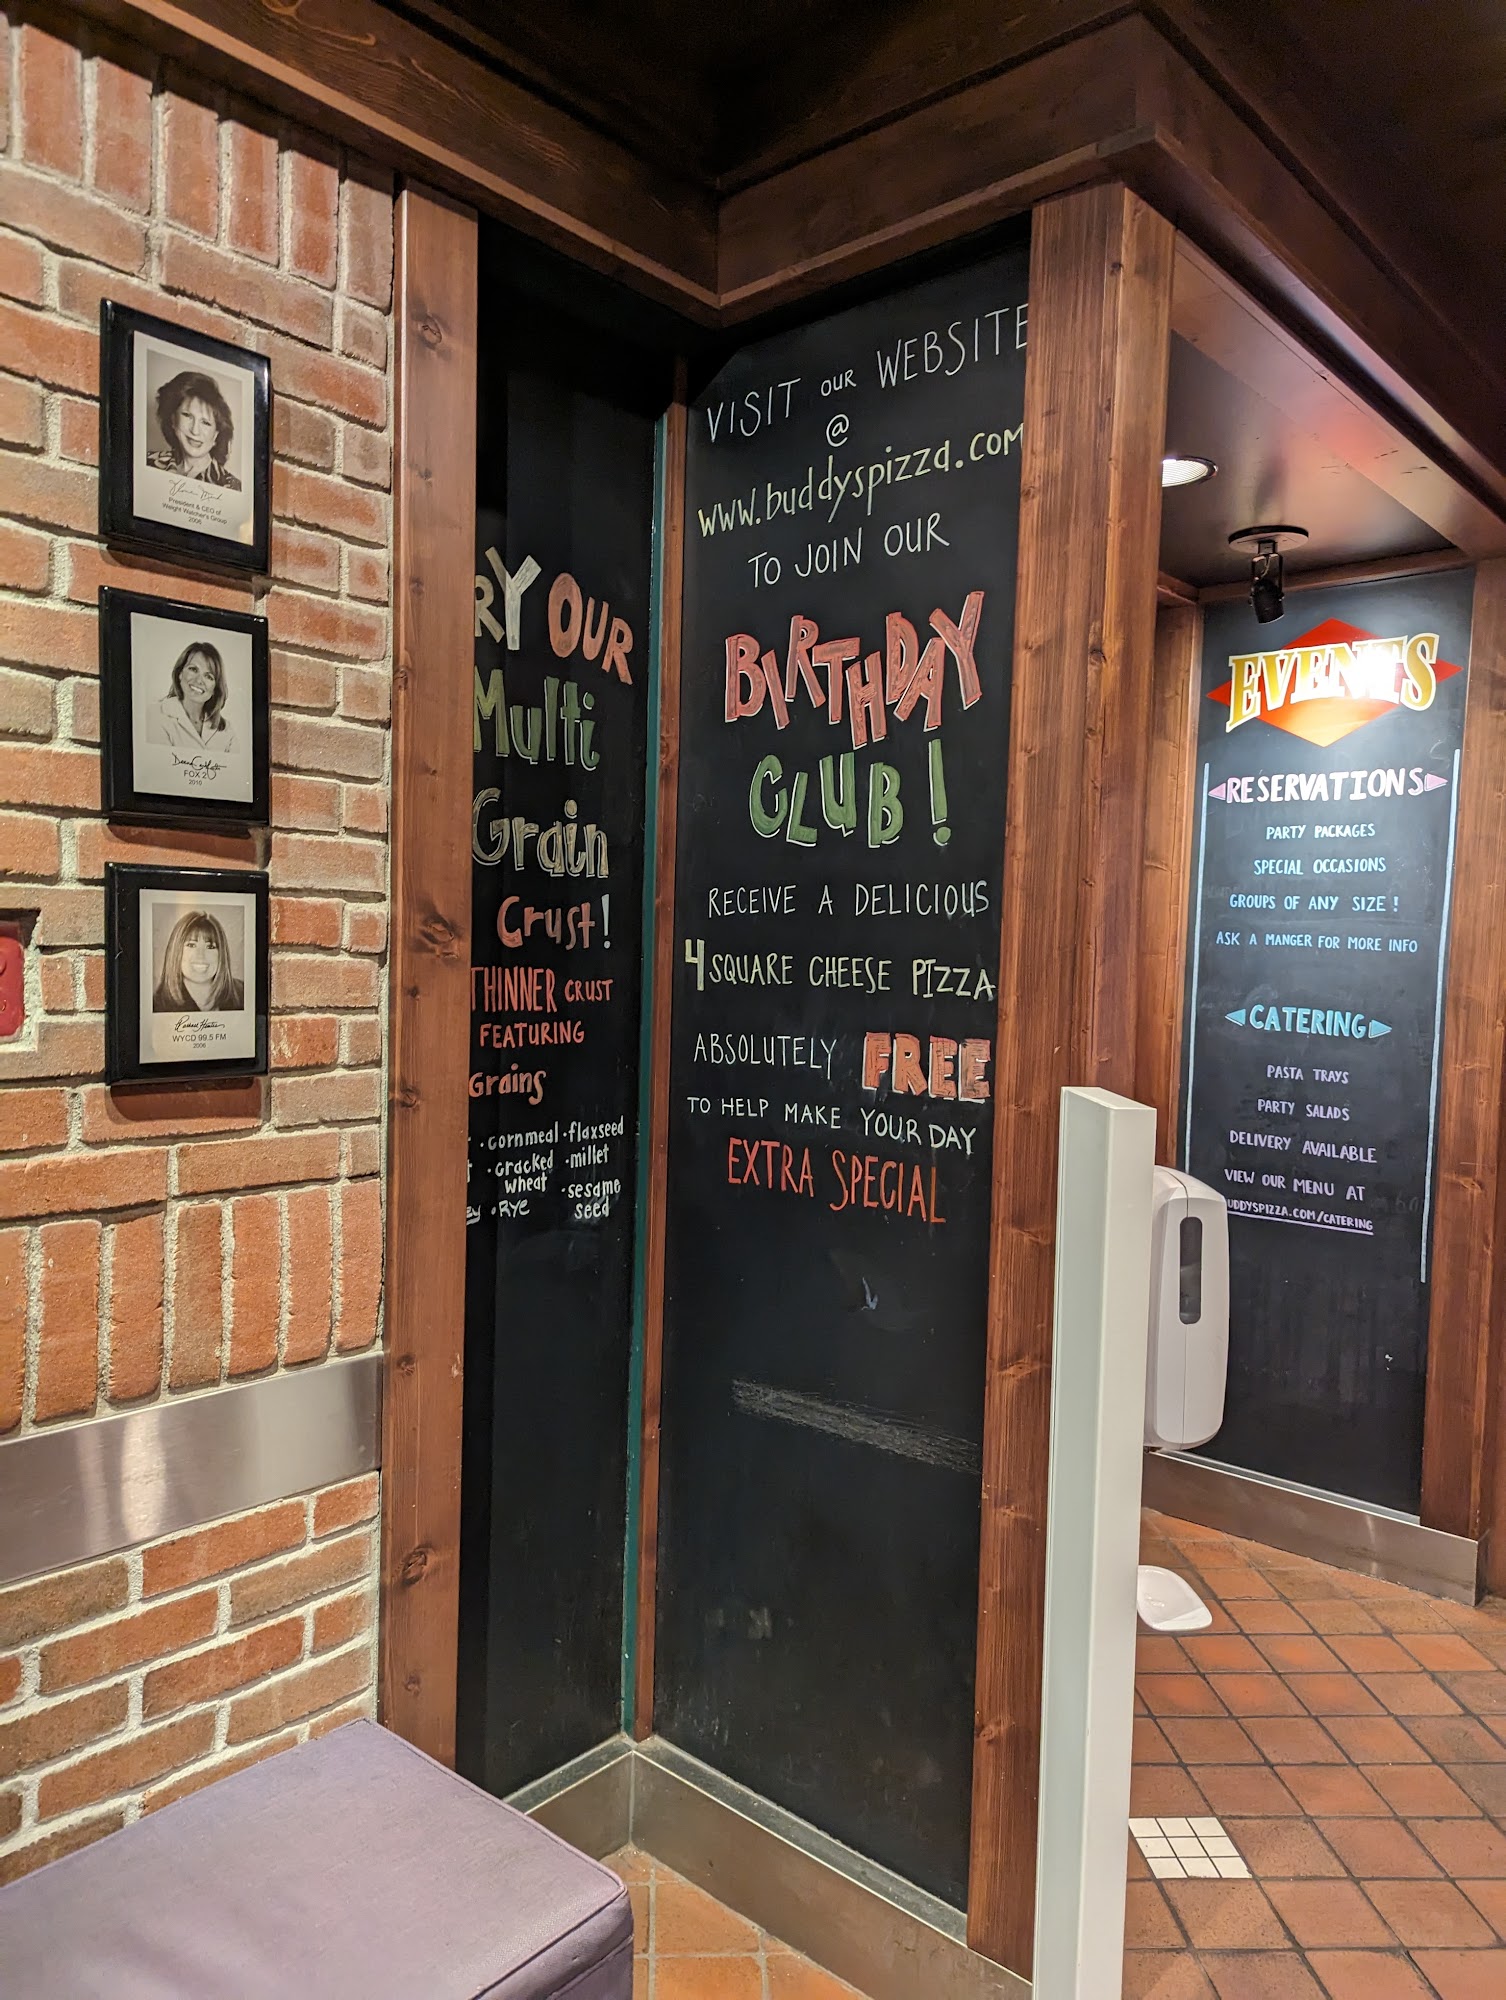 President & CEO of
Weight Watcher's Group
2006
FOX 2
2010
WYCD 99.5 FM
2006
RY OUR
Multi
Grain
Crust!
THINNER CRUST
FEATURING
Grains
·cornmeal ·flaxseed
·cracked ·millet
wheat ·sesame
·RYE seed
VISIT OUR WEBSITE
@
www.buddyspizza.com
TO JOIN OUR
BIRTHDAY
CLUB!
RECEIVE A DELICIOUS
4 SQUARE CHEESE PIZZA
ABSOLUTELY FREE
TO HELP MAKE YOUR DAY
EXTRA SPECIAL
EVENTS
RESERVATIONS
PARTY PACKAGES
SPECIAL OCCASIONS
GROUPS OF ANY SIZE!
ASK A MANGER FOR MORE INFO
CATERING
PASTA TRAYS
PARTY SALADS
DELIVERY AVAILABLE
VIEW OUR MENU AT
UDDYSPIZZA.COM/CATERING